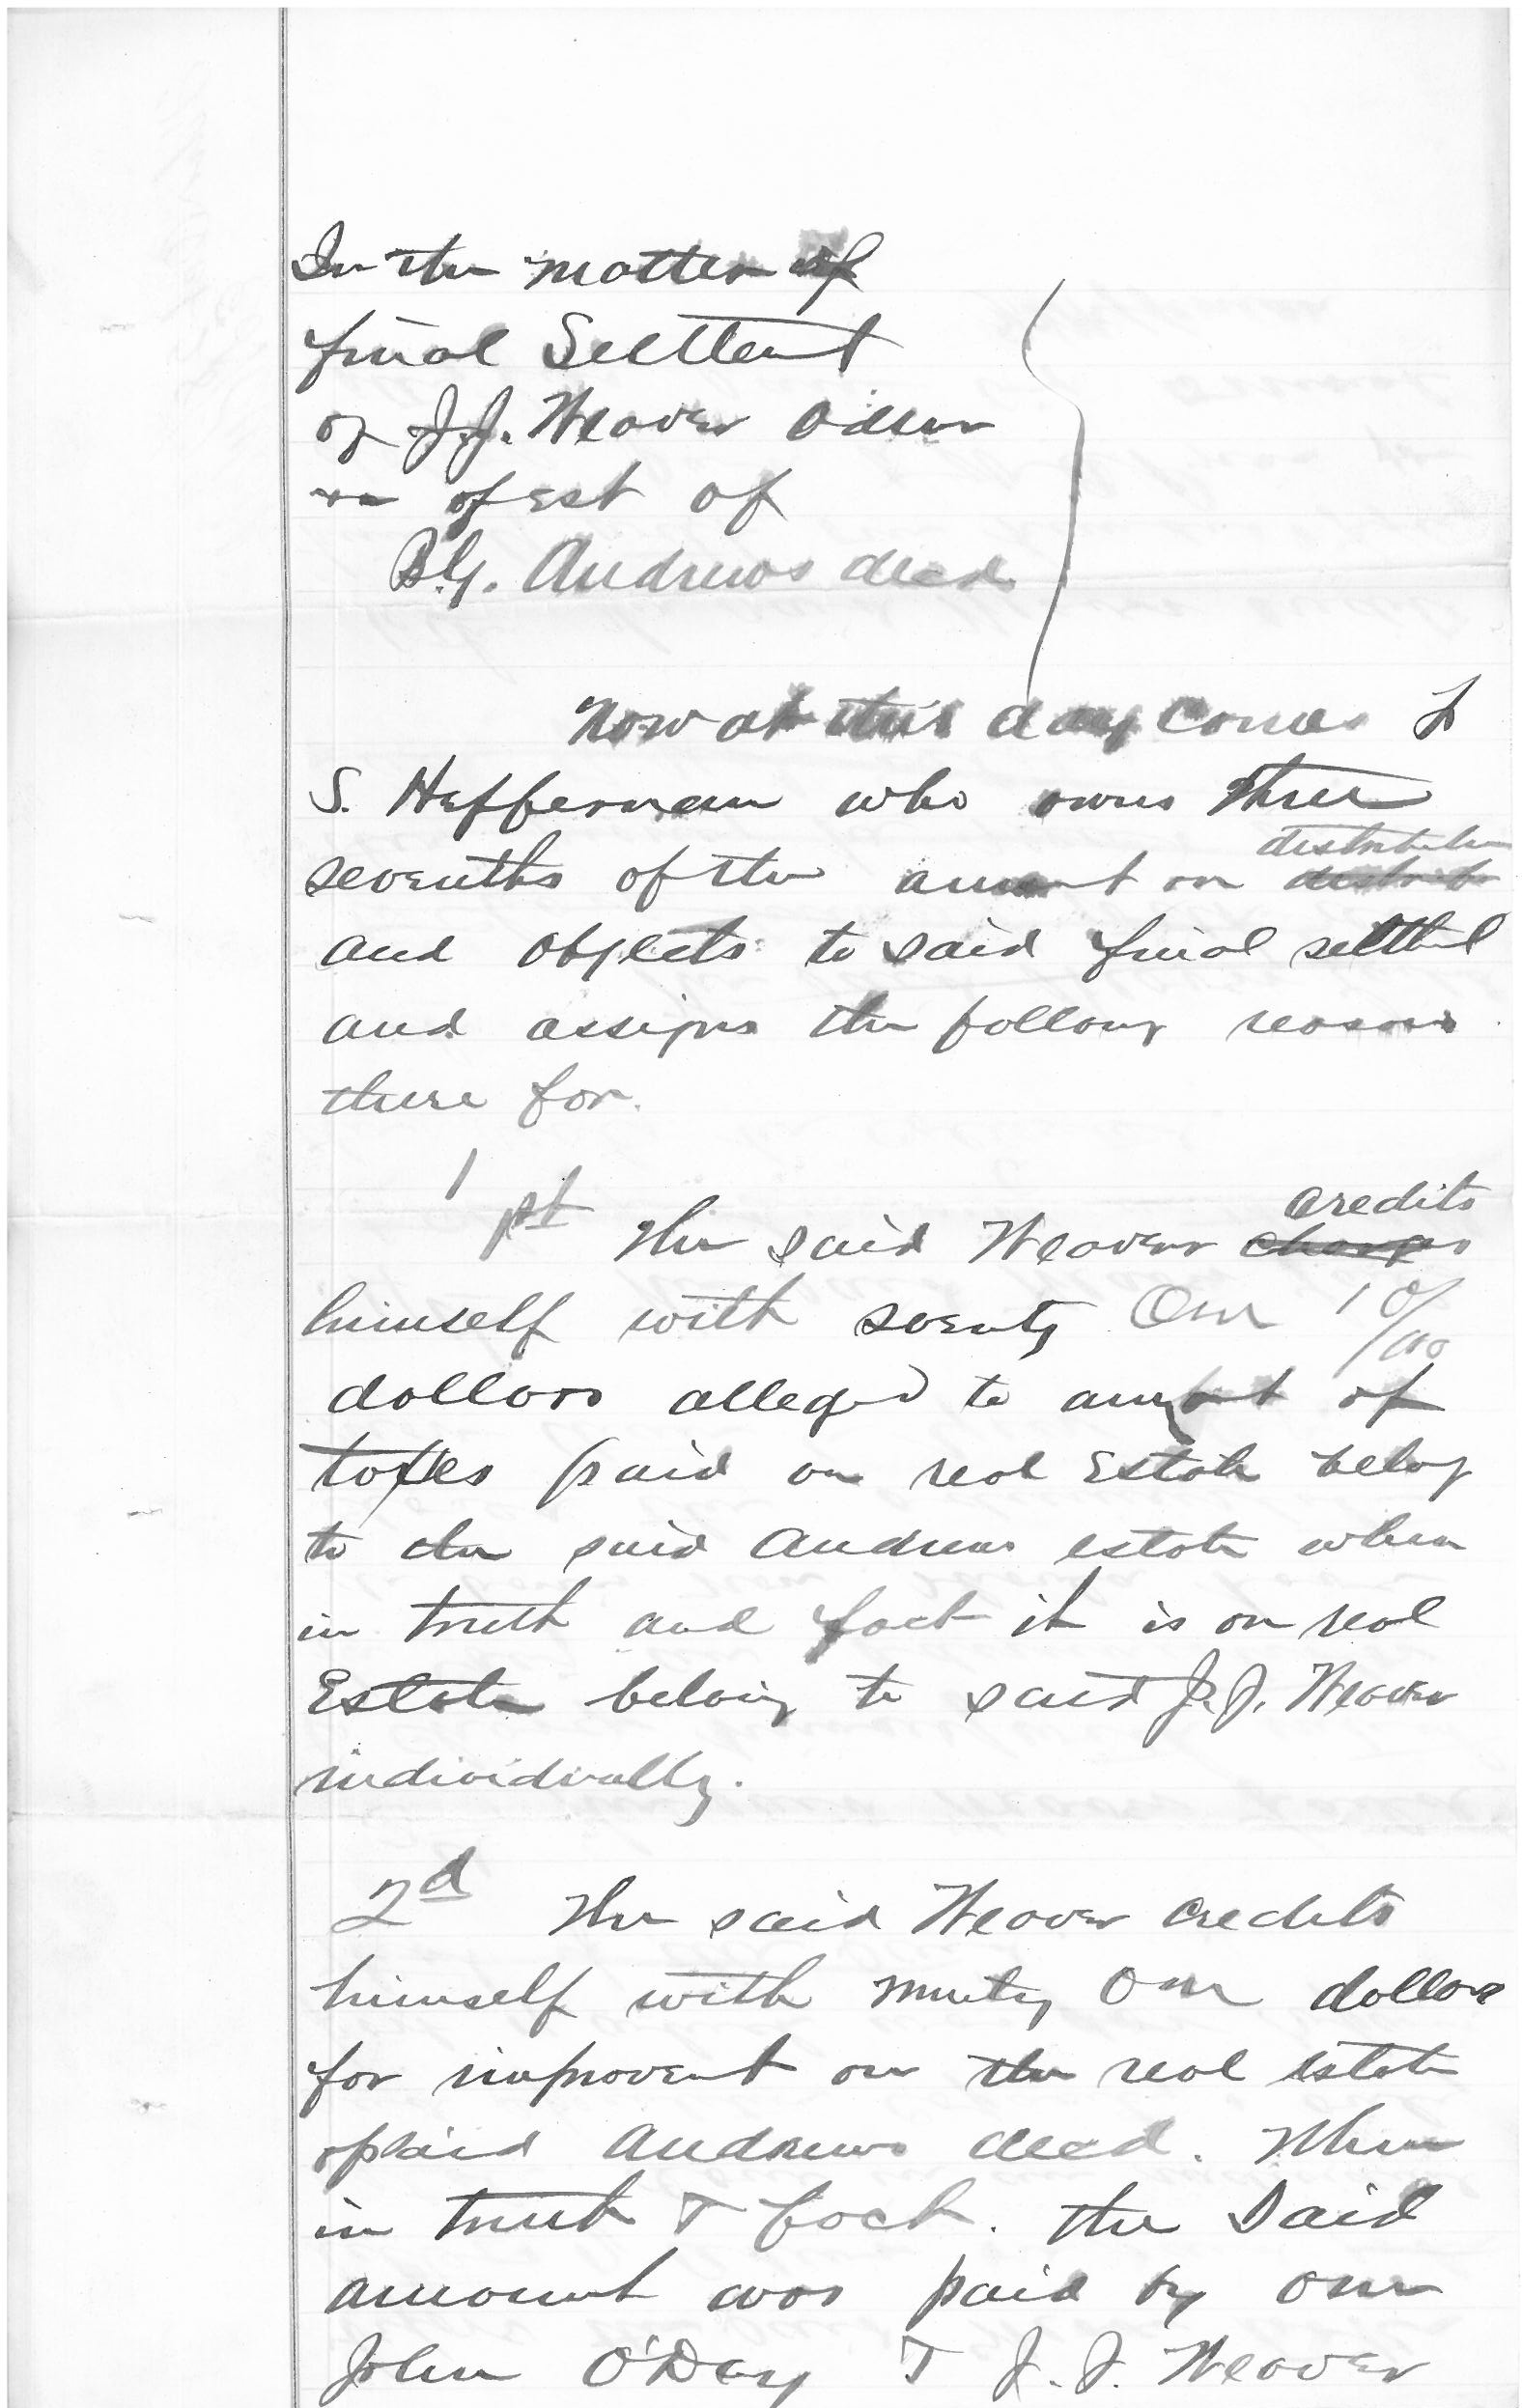 In the matter of
final Settlemt
of J.J. Weaver Admr
of Est of
B.G. Andrews decd
Now at this day comes L
S. Heffernan who owns three
sevenths of the amount on distribution
and objects to said final settlmt
and assigns the following reasons
there for.
1st The said Weaver charges credits
himself with seventy One 10/100
dollars alleged to amount of
taxes paid on real Estate belong
to the said Andrews estate when
in truth and fact it is on real
Estate belong to said J.J. Weaver
individually.
2d The said Weaver credits
himself with ninety One dollars
for improvent on the real estate
of said Andrews decd. When
in truth & fact. the said
amount was paid by one
John O'Day & J. J. Weaver